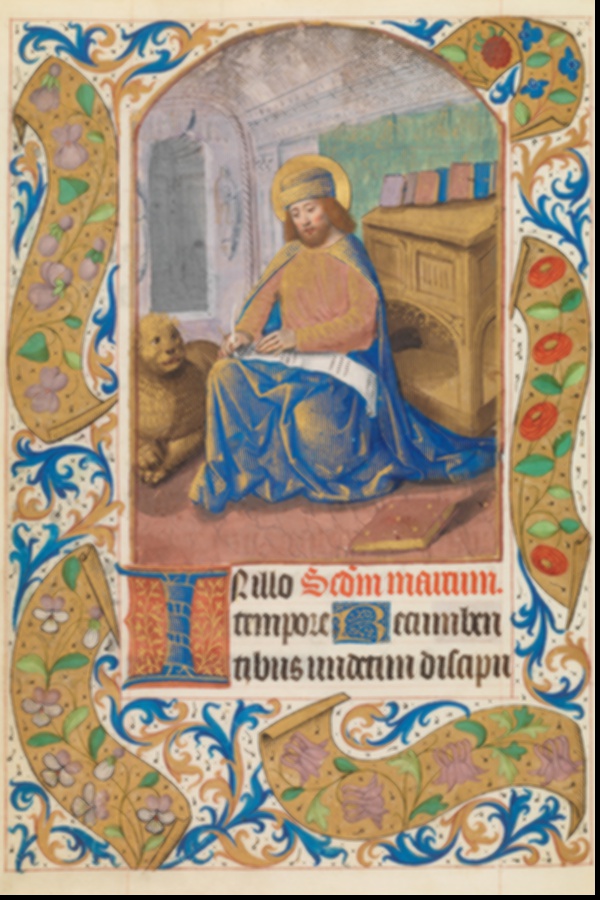 In illo Scdm marcum.
tempore Recumben
tibus undecim discipu